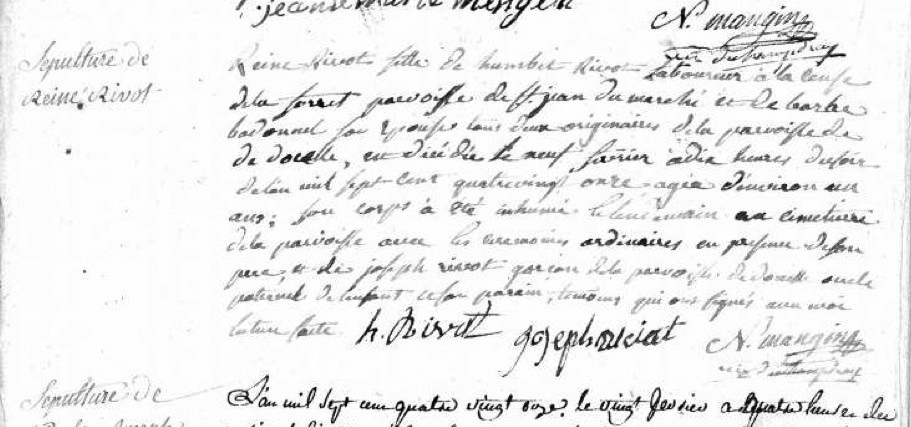 jeanne marie mengin
N. mangin
Sepulture de
Reine Rivot
Reine Rivot fille de humbert Rivot Laboureur à la cense
de la forret parroisse de St. jean du marché et de barbe
badonnel son Epouse tous deux originaires de la parroisse de
de docelle, est décédée le neuf fevrier à dix heures du soir
de l'an mil sept cent quatrevingt onze agée d'environ un
ans; son corps à été inhumé le lendemain au cimetierre
de la parroisse avec les ceremonies ordinaires en presence de son
pere et de joseph rivot garçon de la parroisse de docelle oncle
paternel de l'enfant et son parain, temoins qui ont signés avec moi
lecture faite. h. Rivot
joseph
N. mangin
Sepulture de
L'an mil sept cent quatre vingt onze. le vingt fevrier a quatre heures du